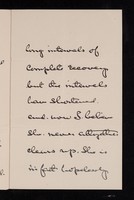 long intervals of
complete recovery
but the intervals
have shortened
and now I believe
she never altogether
clears up. She is
in fact hopelessly